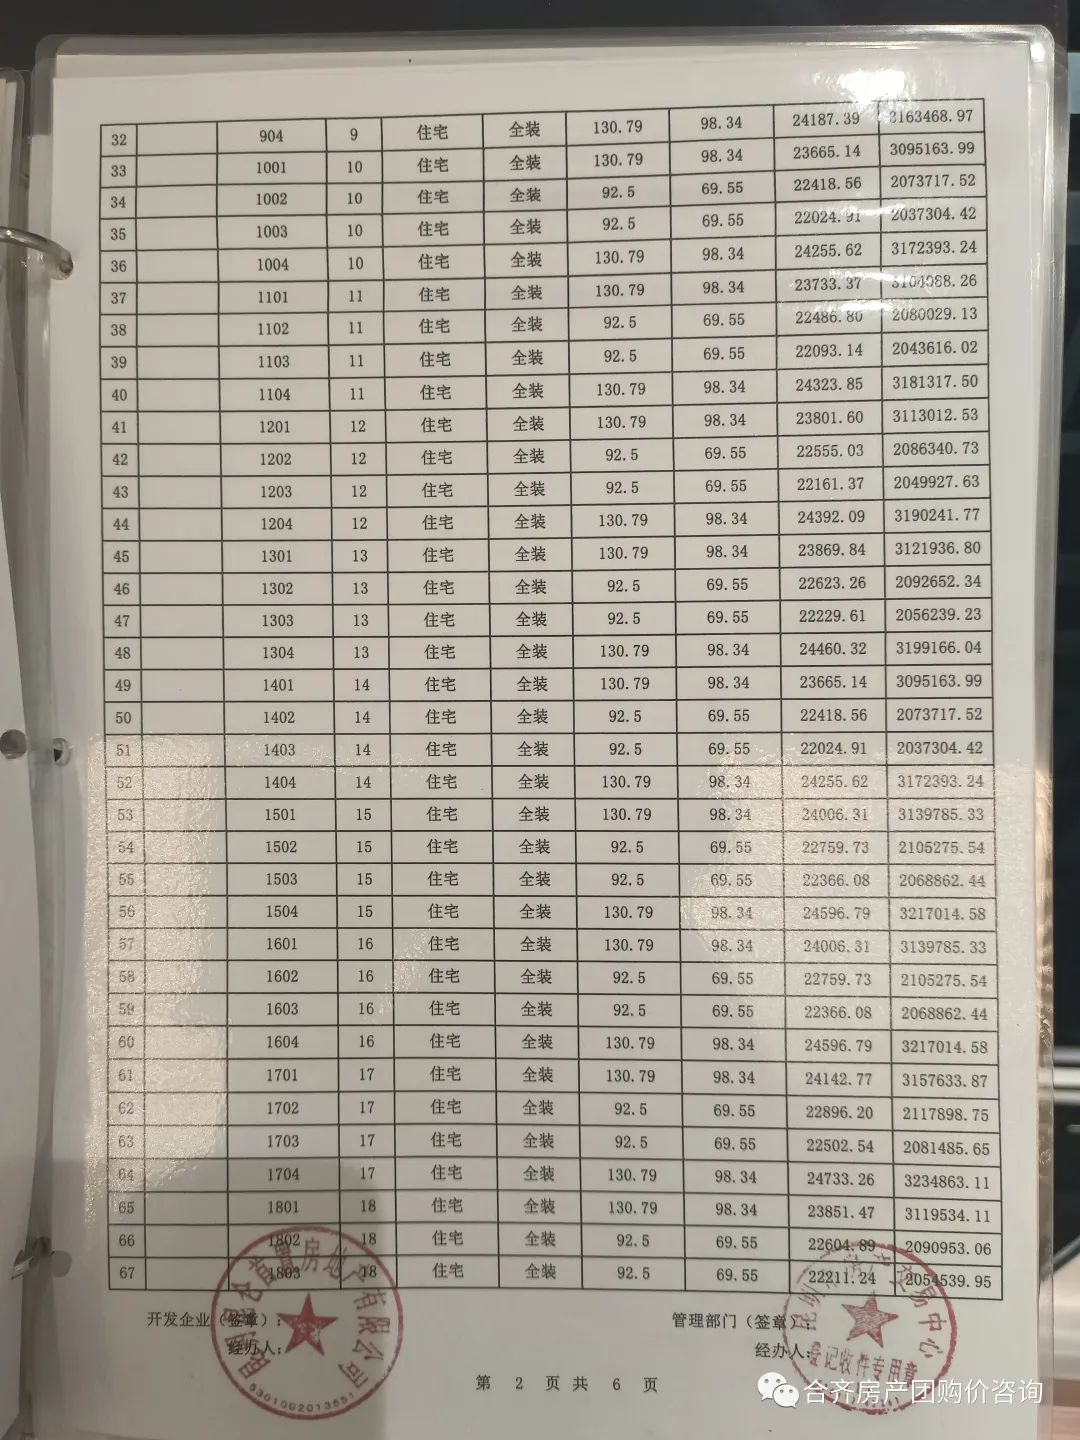 32 904 9 住宅 全装 130.79 98.34 24187.39 3163468.97
33 1001 10 住宅 全装 130.79 98.34 23665.14 3095163.99
34 1002 10 住宅 全装 92.5 69.55 22418.56 2073717.52
35 1003 10 住宅 全装 92.5 69.55 22024.91 2037304.42
36 1004 10 住宅 全装 130.79 98.34 24255.62 3172393.24
37 1101 11 住宅 全装 130.79 98.34 23733.37 3104088.26
38 1102 11 住宅 全装 92.5 69.55 22486.80 2080029.13
39 1103 11 住宅 全装 92.5 69.55 22093.14 2043616.02
40 1104 11 住宅 全装 130.79 98.34 24323.85 3181317.50
41 1201 12 住宅 全装 130.79 98.34 23801.60 3113012.53
42 1202 12 住宅 全装 92.5 69.55 22555.03 2086340.73
43 1203 12 住宅 全装 92.5 69.55 22161.37 2049927.63
44 1204 12 住宅 全装 130.79 98.34 24392.09 3190241.77
45 1301 13 住宅 全装 130.79 98.34 23869.84 3121936.80
46 1302 13 住宅 全装 92.5 69.55 22623.26 2092652.34
47 1303 13 住宅 全装 92.5 69.55 22229.61 2056239.23
48 1304 13 住宅 全装 130.79 98.34 24460.32 3199166.04
49 1401 14 住宅 全装 130.79 98.34 23665.14 3095163.99
50 1402 14 住宅 全装 92.5 69.55 22418.56 2073717.52
51 1403 14 住宅 全装 92.5 69.55 22024.91 2037304.42
52 1404 14 住宅 全装 130.79 98.34 24255.62 3172393.24
53 1501 15 住宅 全装 130.79 98.34 24006.31 3139785.33
54 1502 15 住宅 全装 92.5 69.55 22759.73 2105275.54
55 1503 15 住宅 全装 92.5 69.55 22366.08 2068862.44
56 1504 15 住宅 全装 130.79 98.34 24596.79 3217014.58
57 1601 16 住宅 全装 130.79 98.34 24006.31 3139785.33
58 1602 16 住宅 全装 92.5 69.55 22759.73 2105275.54
59 1603 16 住宅 全装 92.5 69.55 22366.08 2068862.44
60 1604 16 住宅 全装 130.79 98.34 24596.79 3217014.58
61 1701 17 住宅 全装 130.79 98.34 24142.77 3157633.87
62 1702 17 住宅 全装 92.5 69.55 22896.20 2117898.75
63 1703 17 住宅 全装 92.5 69.55 22502.54 2081485.65
64 1704 17 住宅 全装 130.79 98.34 24733.26 3234863.11
65 1801 18 住宅 全装 130.79 98.34 23851.47 3119534.11
66 1802 18 住宅 全装 92.5 69.55 22604.89 2090953.06
67 1803 18 住宅 全装 92.5 69.55 22211.24 2054539.95
开发企业（签章）： 管理部门（签章）：
经办人： 经办人：
昆明昆仑首置房地产有限公司
5301002013651
产交易中心
登记收件专用章
第 2 页 共 6 页
合齐房产团购价咨询